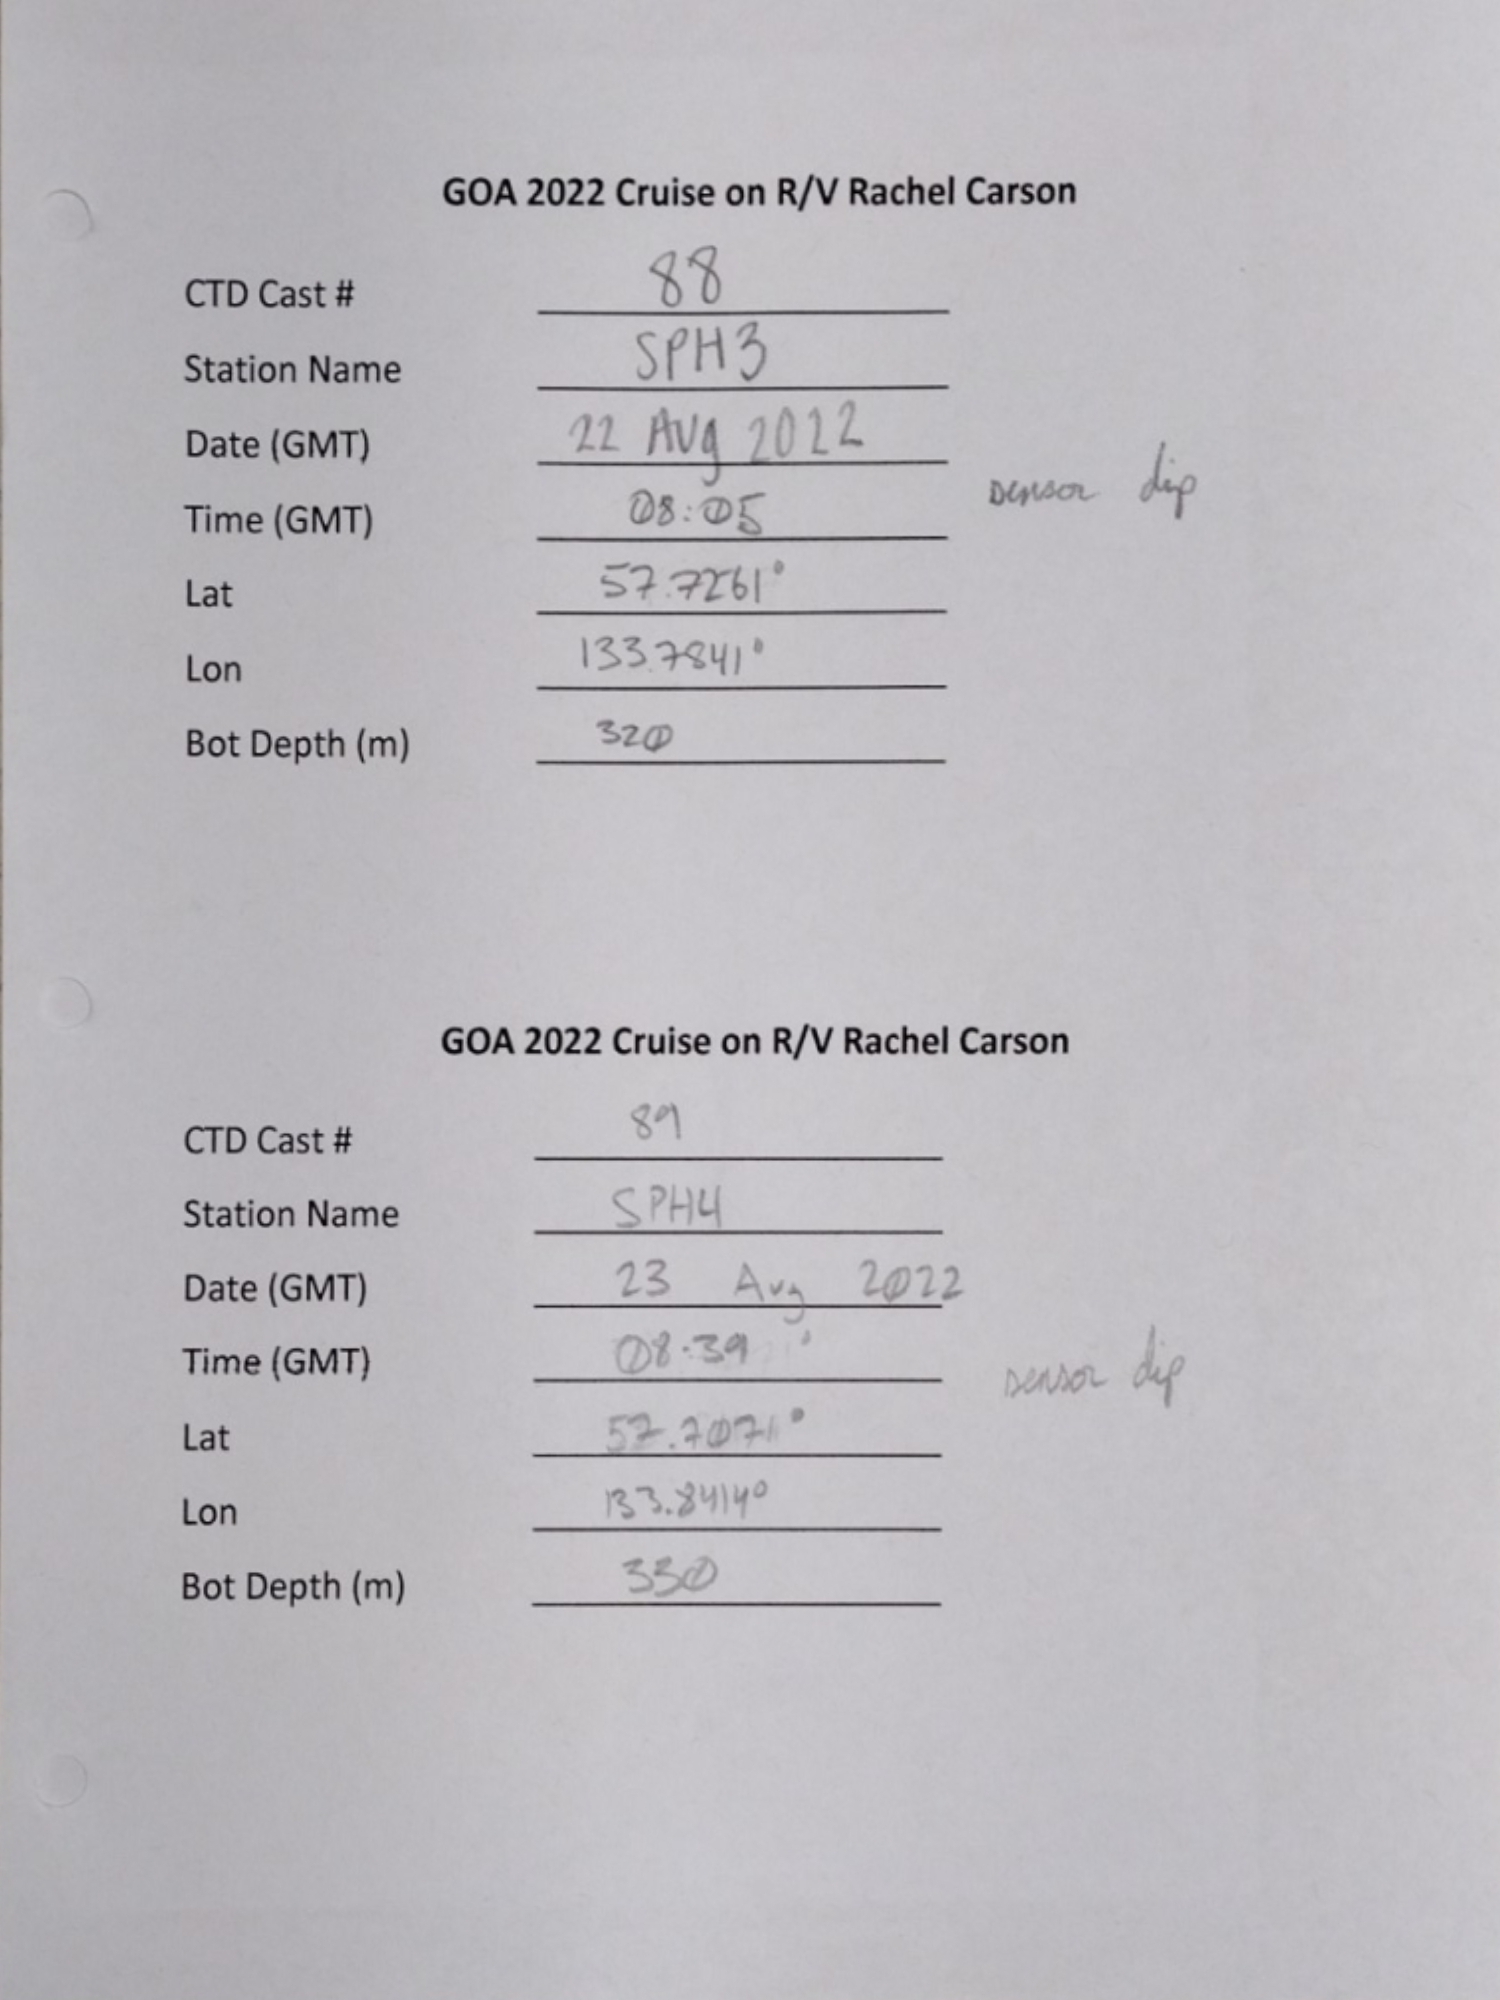 GOA 2022 Cruise on R/V Rachel Carson
CTD Cast # 88
Station Name SPH3
Date (GMT) 22 Aug 2022
sensor dip
Time (GMT) 08:05
Lat 57.7261°
Lon 133.7841°
Bot Depth (m) 320
GOA 2022 Cruise on R/V Rachel Carson
CTD Cast # 89
Station Name SPH4
Date (GMT) 23 Aug 2022
Time (GMT) 08:39
sensor dip
Lat 57.7071°
Lon 133.8414°
Bot Depth (m) 330